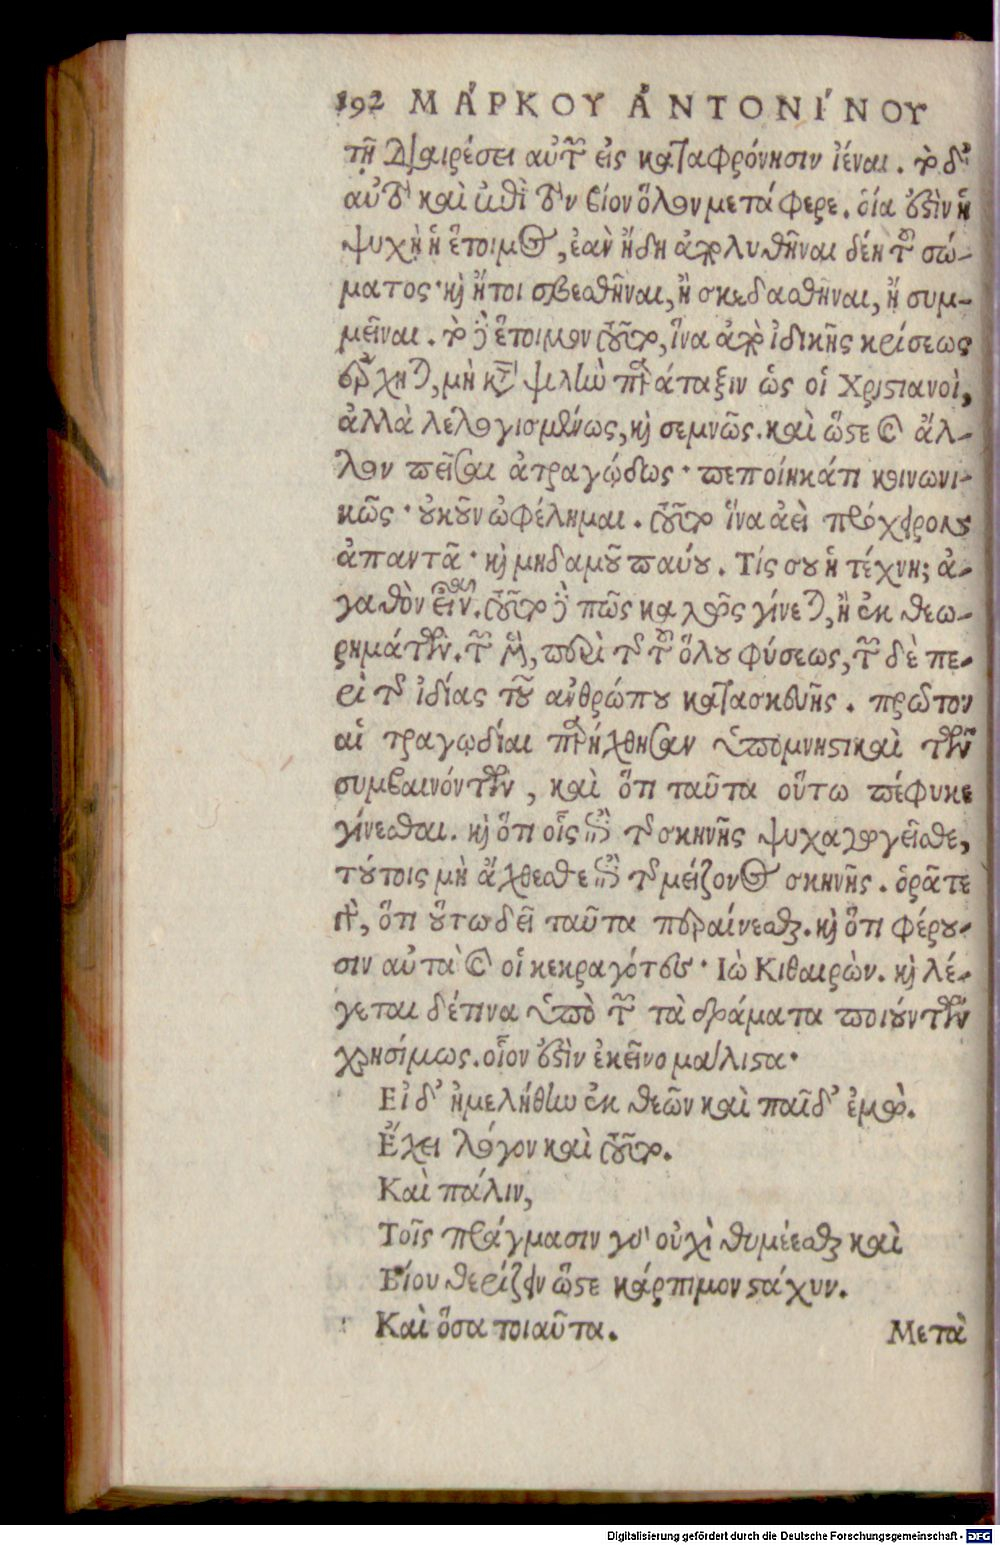 192 ΜΆΡΚΟΥ ἈΝΤΟΝΊΝΟΥ
τῇ διαιρέσει αὐτῶν εἰς καταφρόνησιν ἰέναι. τὸ δ'
αὐτὸ καὶ ἐπὶ τὸν βίον ὅλον μετάφερε. οἵα ἐστὶν ἡ
ψυχὴ ἡ ἕτοιμος, ἐὰν ἤδη ἀπολυθῆναι δέῃ τοῦ σώ-
ματος· καὶ ἤτοι σβεσθῆναι, ἢ σκεδασθῆναι, ἢ συμ-
μεῖναι. τὸ δὲ ἕτοιμον τοῦτο, ἵνα ἀπὸ ἰδικῆς κρίσεως
ἔρχηται, μὴ κατὰ ψιλὴν παράταξιν ὡς οἱ Χριστιανοὶ,
ἀλλὰ λελογισμένως, καὶ σεμνῶς. καὶ ὥστε καὶ ἄλ-
λον πεῖσαι ἀτραγῴδως· πεποίηκά τι κοινωνι-
κῶς· οὐκοῦν ὠφέλημαι. τοῦτο ἵνα ἀεὶ πρόχειρον
ἀπαντᾷ· καὶ μηδαμοῦ παύου. Τίς σου ἡ τέχνη; ἀ-
γαθὸν εἶναι. τοῦτο δὲ πῶς καλῶς γίνεται, ἢ ἐκ θεω-
ρημάτων. τῶν μὲν, περὶ τῆς τοῦ ὅλου φύσεως, τῶν δὲ πε-
ρὶ τῆς ἰδίας τοῦ ἀνθρώπου κατασκευῆς. πρῶτον
αἱ τραγῳδίαι παρήχθησαν ὑπομνηστικαὶ τῶν
συμβαινόντων, καὶ ὅτι ταῦτα οὕτω πέφυκε
γίνεσθαι. καὶ ὅτι οἷς ἐπὶ τῆς σκηνῆς ψυχαγωγεῖσθε,
τούτοις μὴ ἄχθεσθε ἐπὶ τῆς μείζονος σκηνῆς. ὁρᾶτε
γὰρ, ὅτι οὕτω δεῖ ταῦτα περαίνεσθαι. καὶ ὅτι φέρου-
σιν αὐτὰ καὶ οἱ κεκραγότες· Ἰὼ Κιθαιρὼν. καὶ λέ-
γεται δέ τινα ὑπὸ τῶν τὰ δράματα ποιούντων
χρησίμως. οἷον ἐστὶν ἐκεῖνο μάλιστα·
Εἰ δ' ἠμελήθην ἐκ θεῶν καὶ παῖδ' ἐμώ.
Ἔχει λόγον καὶ τοῦτο.
Καὶ πάλιν,
Τοῖς πράγμασιν γὰρ οὐχὶ θυμέεσθαι καὶ
Βίου θερίζειν ὥστε κάρπιμον στάχυν.
Καὶ ὅσα τοιαῦτα.
Μετὰ
Digitalisierung gefördert durch die Deutsche Forschungsgemeinschaft - DFG